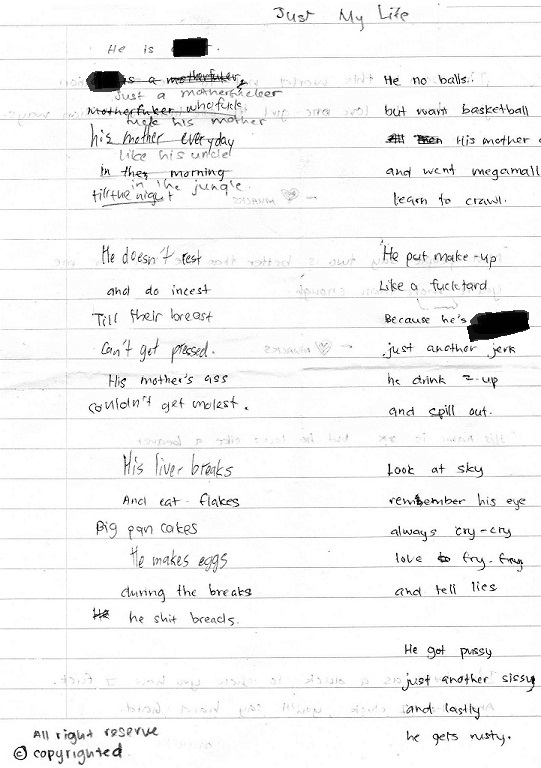 Just My Life
He is
s a motherfuker,
Just a motherfuckeer
Motherfuker who fuck
fuck his mother
his mother everyday
Like his uncle
in the morning
in the jungle.
till the night
He doesn't rest
and do incest
Till their breast
Can't get pressed.
His mother's ass
couldn't get molest.
His liver breaks
And eat flakes
Big pan cakes
He makes eggs
during the breaks
He he shit breads.
He no balls..
but wain basketball
His mother
and went megamall
learn to crawl.
He put make-up
Like a fucktard
Because he's
just another jerk
he drink 7-up
and spill out.
Look at sky
remember his eye
always cry-cry
love to fry-frys
and tell lies
He got pussy
just another sissy
and lastly
he gets rusty.
All right reserve
© copyrighted